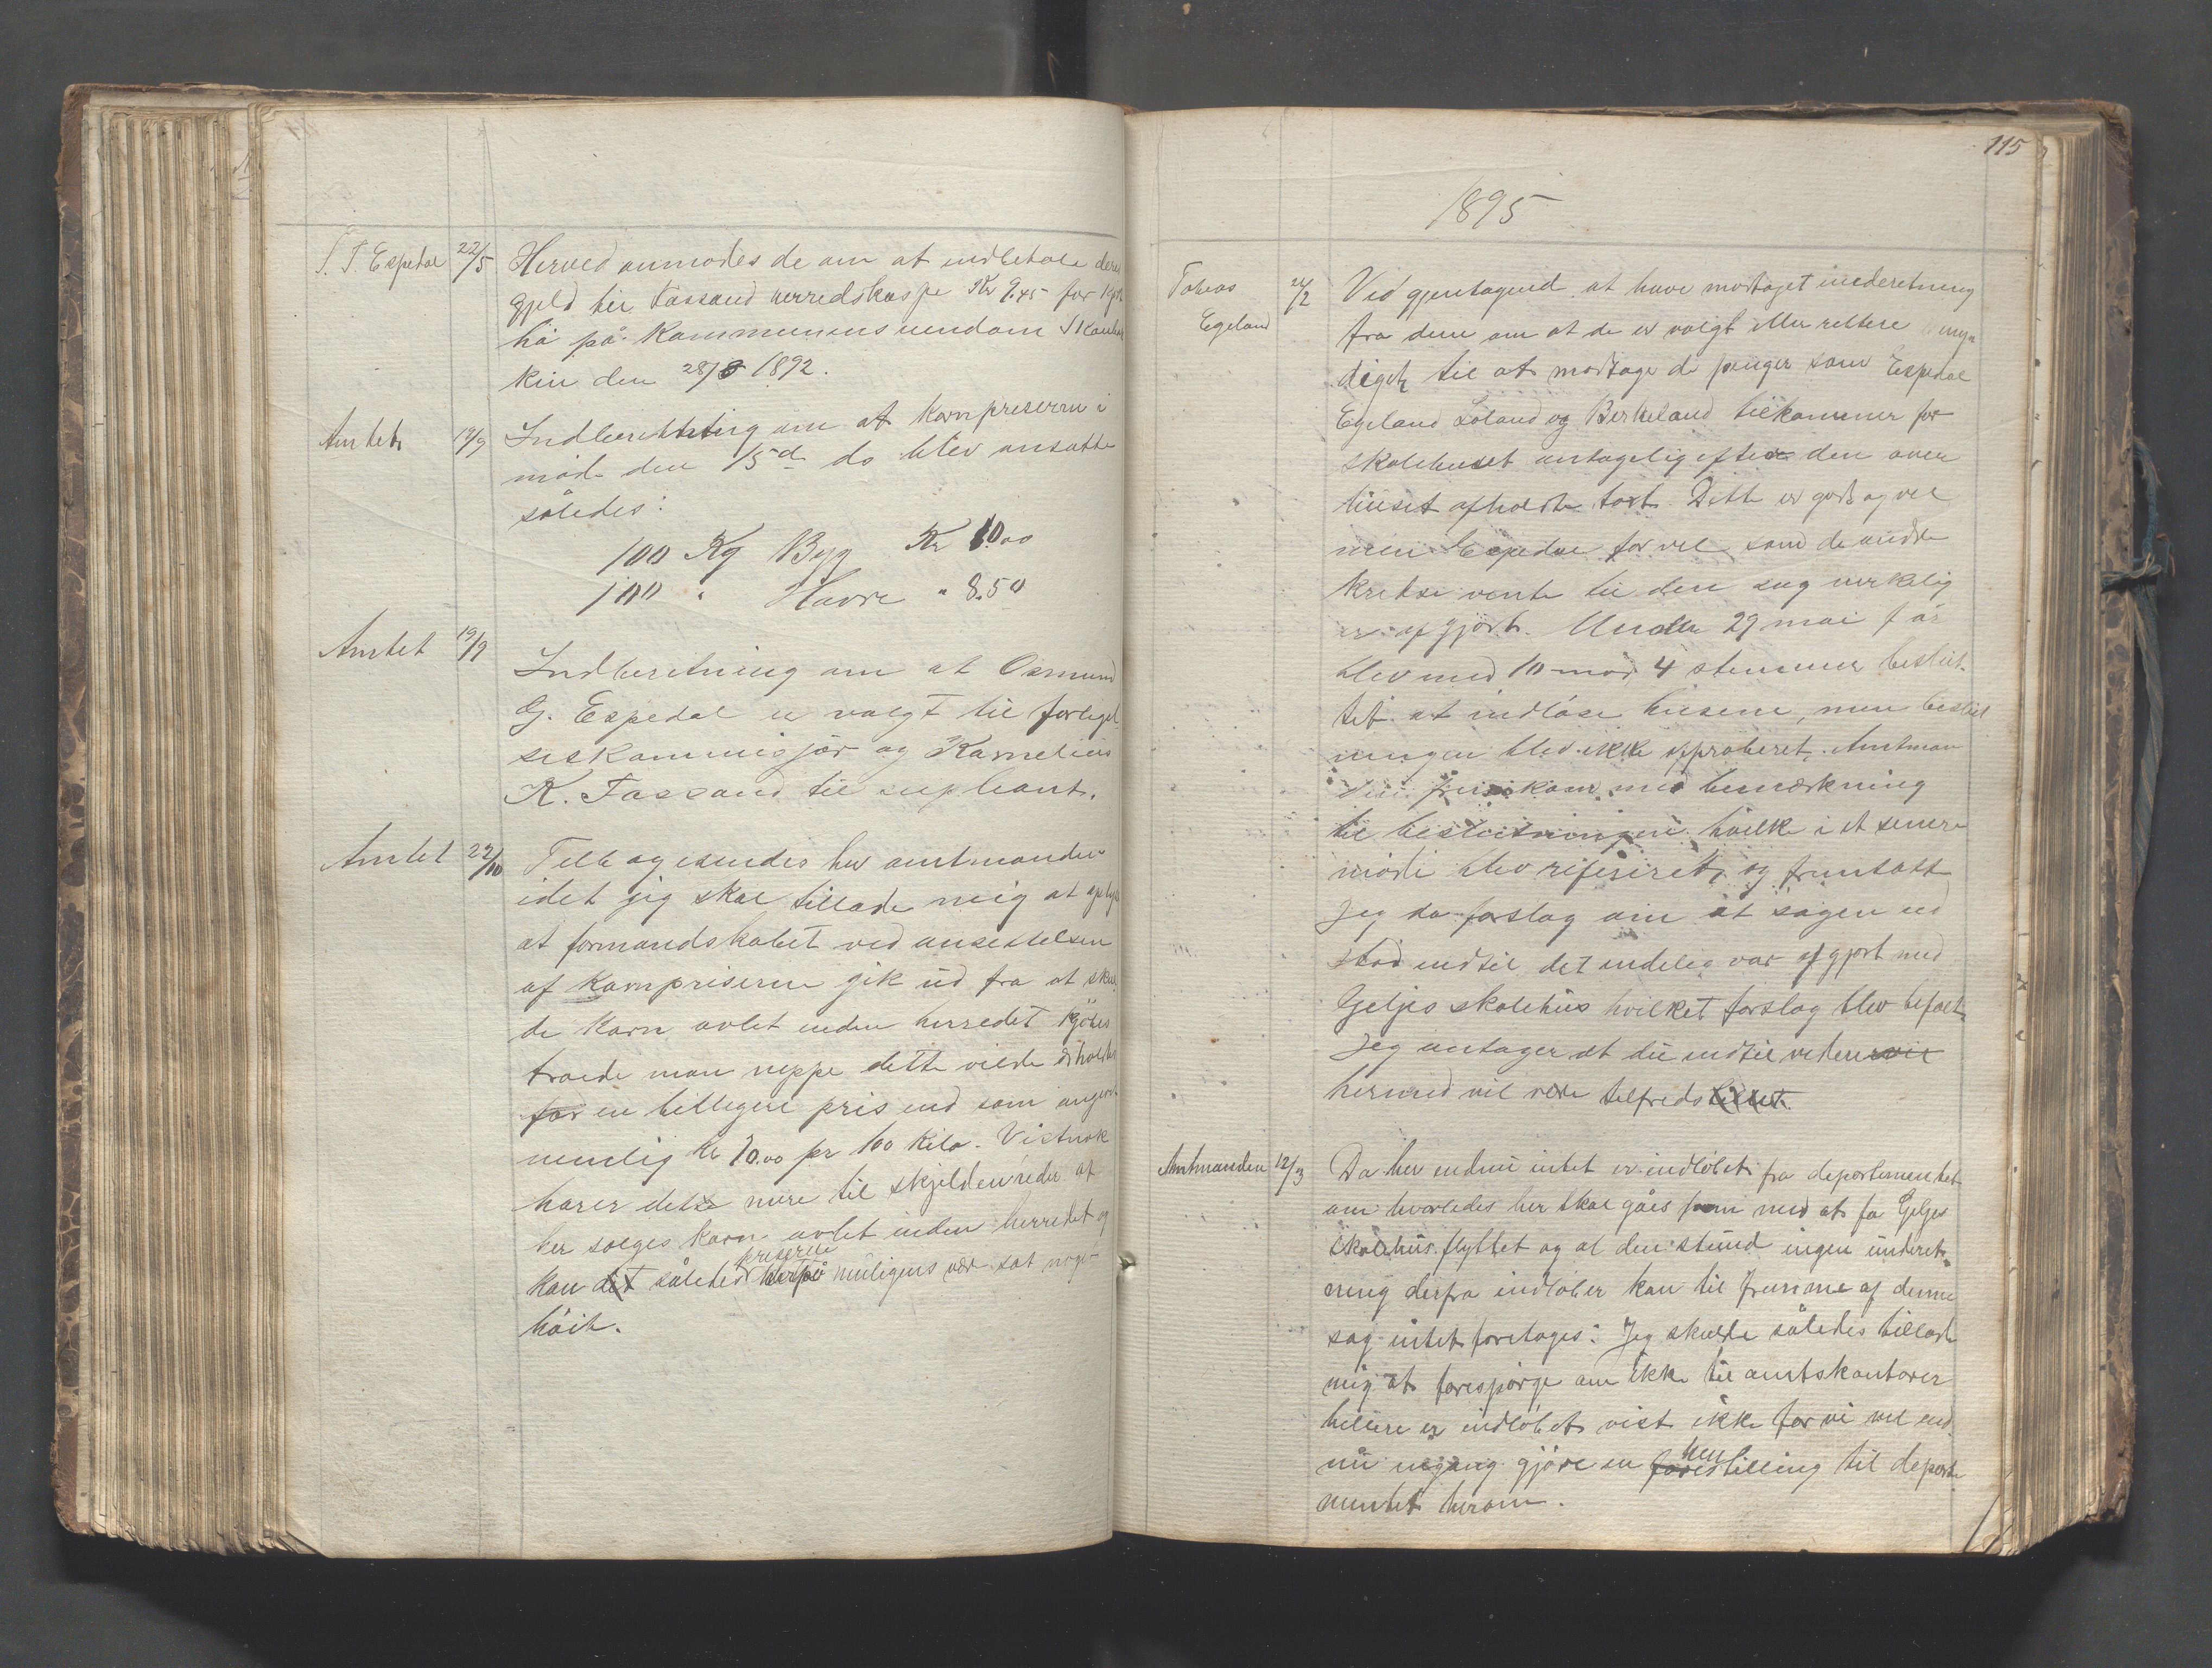 S. T. Espedal 22/5 Herved anmodes de om at indbetale deres
gjeld til Fossand herredskasse Kr 9.45 for kjøbt
hå på kommunens eiendom
den 28/8 1892.
Amtet 19/9 Indberettning om at kornpriserne i
møde den 15de ds blev ansatte
således:
100 Kg Byg Kr 10.00
100 " Havre " 8.50
Amtet 19/9
Indberetning om at Osmund
G. Espedal er valgt til forligel
seskommisjør og Kornelius
K. Fossand til supleant.
Amtet 22/10 Tilbagesendes hr amtmanden
idet jeg skal tillade mig at oplyse
at formandskabet ved ansettelsen
af kornpriserne gik ud fra at skul
de korn avlet inden herredet kjøbes
troede man neppe dette vilde erholdes
for en billigere pris end som angivet
nemlig kr 10.00 pr 100 kilo. Vistnok
hører dette mere til skjeldenheder at
her selges korn avlet inden herredet og
kan det således priserne herpå muligens være sat noget
høit.
115
1895
Tobias 24/2 Vid gjentagned at have modtaget underetning
Egeland fra dem om at de er valgt eller rettere myn
diget til at modtage de penger som Espedal
Egeland Loland og Berkeland tilkommer for
skolehuset antagelig efter den over
huset afholdte takst. Dette er godt og vel
men Espedal får vel som de andre
kretse vente til den sag virkelig
er afgjort. Under 29 mai f år
blev med 10 mod 4 stemmer beslut
tet at indløse husene, men beslut
ningen blev ikke approberet. Amtman
den fremkom med bemerkning
til beslutningen hvilke i et senere
møde blev refereret, og fremsatte
jeg da forslag om at sagen ud
stod indtil det endelig var afgjort med
Geljes skolehus hvilket forslag blev befalt.
Jeg antager at du indtil videre vil
hermed vil være tilfreds
Amtmanden 12/3 Da her endnu intet er indløbet fra departementet
om hvorledes her skal gåes frem med at få Geljes
skolehus flyttet og al den stund ingen underet
ning derfra indløber kan til fremme af denne
sag intet foretages. Jeg skulde således tillade
mig at forespørge om ikke til amtskontoret
hellere er indløbet vist ikke får vi vel end
nu engang gjøre en forestilling hen til departe
mentet herom.